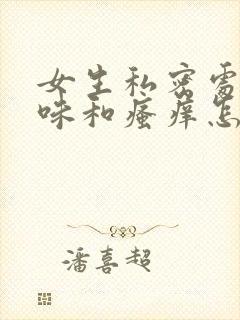 女生私密处
味和瘙痒怎
潘喜超